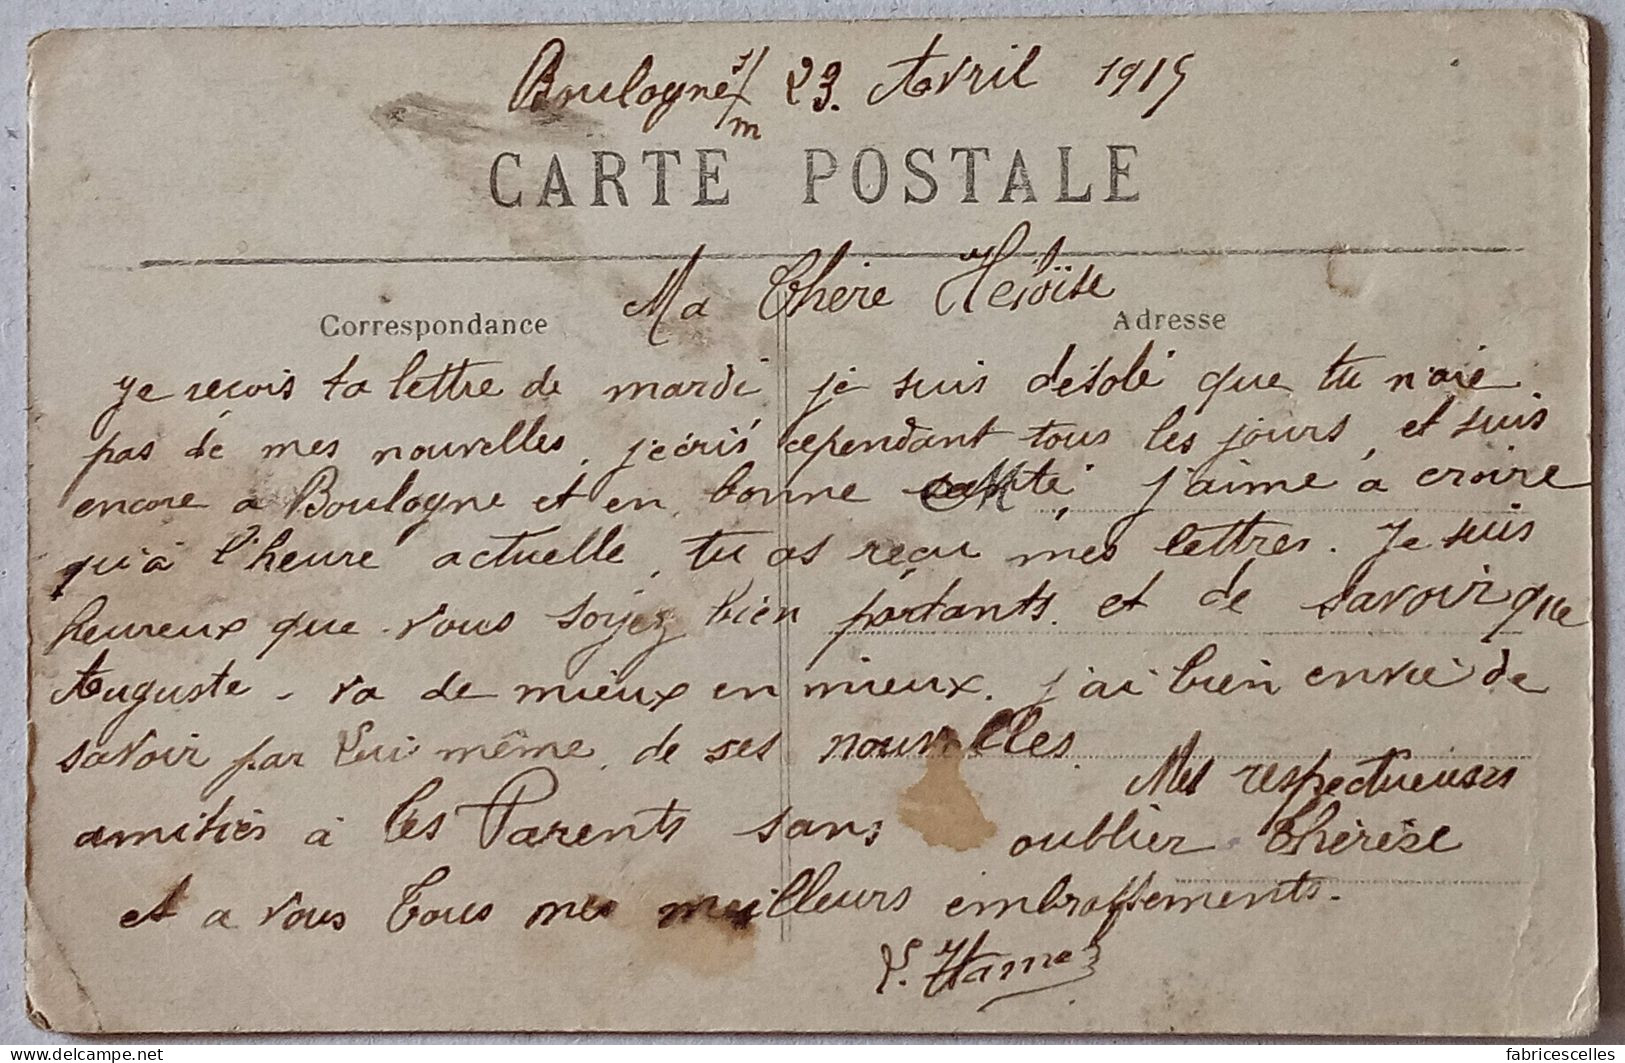 Boulogne s/m 23. Avril 1915
CARTE POSTALE
Ma Chère Héloïse
Correspondance
Adresse
Je reçois ta lettre de mardi je suis désolé que tu n'aie
pas de mes nouvelles, j'écris cependant tous les jours, et suis
encore a Boulogne et en bonne santé, j'aime à croire
qu'à l'heure actuelle, tu as reçu mes lettres. Je suis
heureux que vous soyez bien portants. et de savoir que
Auguste - va de mieux en mieux. j'ai bien envie de
savoir par Lui même, de ses nouvelles.
Mes respectueuses
amitiés à les Parents sans oublier Thérèse
et a vous Tous mes meilleurs embrassements.
fabricescelles